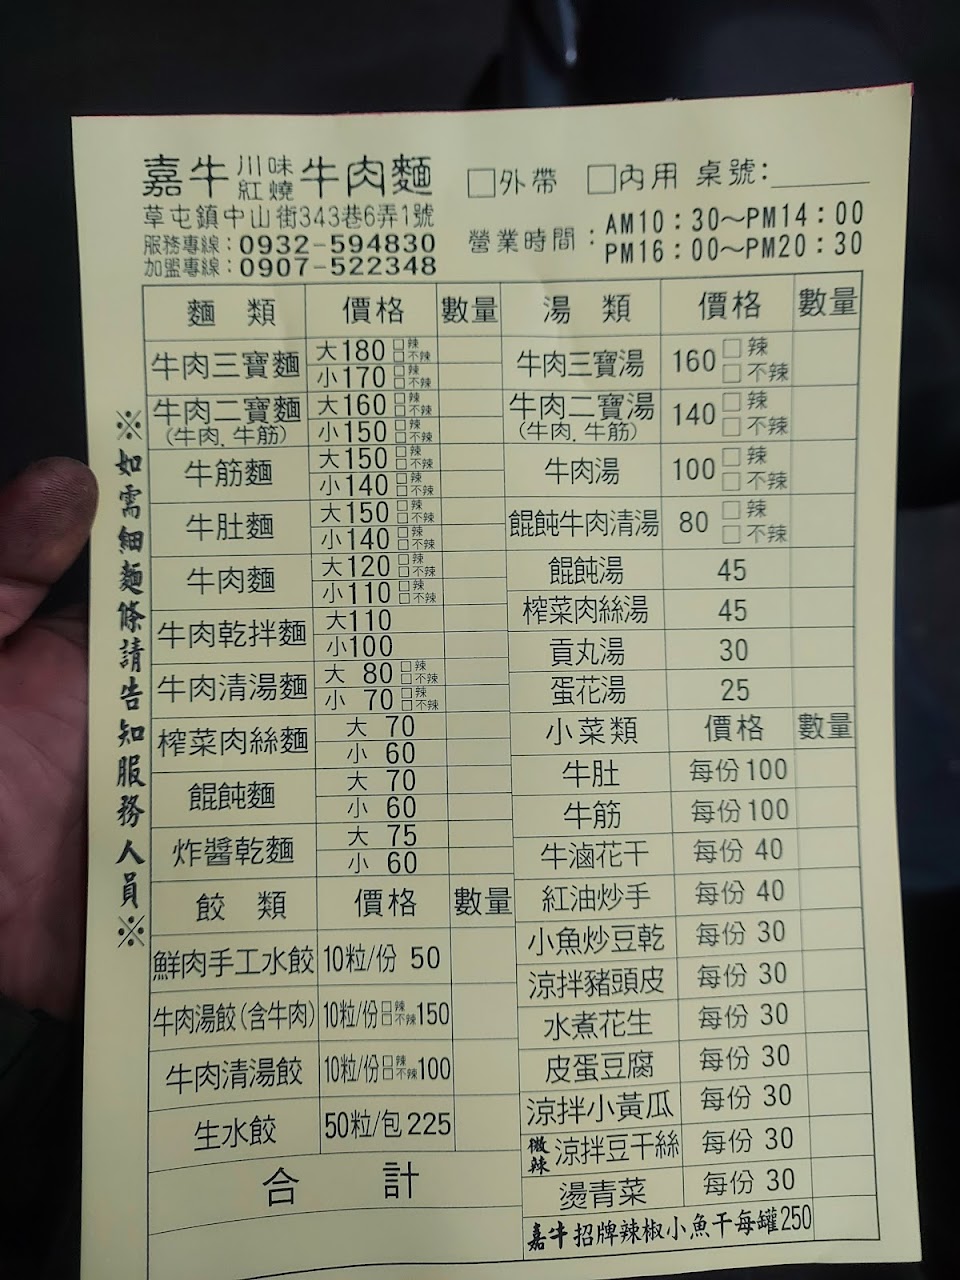 嘉牛 川味紅燒 牛肉麵
□外帶 □內用 桌號:
草屯鎮中山街343巷6弄1號
服務專線:0932-594830
加盟專線:0907-522348
營業時間:AM10:30～PM14:00
PM16:00～PM20:30
※如需細麵條請告知服務人員※
麵類 價格 數量
牛肉三寶麵 大180 □辣 □不辣
小170 □辣 □不辣
牛肉二寶麵(牛肉.牛筋) 大160 □辣 □不辣
小150 □辣 □不辣
牛筋麵 大150 □辣 □不辣
小140 □辣 □不辣
牛肚麵 大150 □辣 □不辣
小140 □辣 □不辣
牛肉麵 大120 □辣 □不辣
小110 □辣 □不辣
牛肉乾拌麵 大110
小100
牛肉清湯麵 大 80 □辣 □不辣
小 70 □辣 □不辣
榨菜肉絲麵 大 70
小 60
餛飩麵 大 70
小 60
炸醬乾麵 大 75
小 60
餃類 價格 數量
鮮肉手工水餃 10粒/份 50
牛肉湯餃(含牛肉) 10粒/份 □辣 □不辣 150
牛肉清湯餃 10粒/份 □辣 □不辣 100
生水餃 50粒/包 225
合計
湯類 價格 數量
牛肉三寶湯 160 □辣 □不辣
牛肉二寶湯(牛肉.牛筋) 140 □辣 □不辣
牛肉湯 100 □辣 □不辣
餛飩牛肉清湯 80 □辣 □不辣
餛飩湯 45
榨菜肉絲湯 45
貢丸湯 30
蛋花湯 25
小菜類 價格 數量
牛肚 每份100
牛筋 每份100
牛滷花干 每份 40
紅油炒手 每份 40
小魚炒豆乾 每份 30
涼拌豬頭皮 每份 30
水煮花生 每份 30
皮蛋豆腐 每份 30
涼拌小黃瓜 每份 30
微辣 涼拌豆干絲 每份 30
燙青菜 每份 30
嘉牛招牌辣椒小魚干每罐250